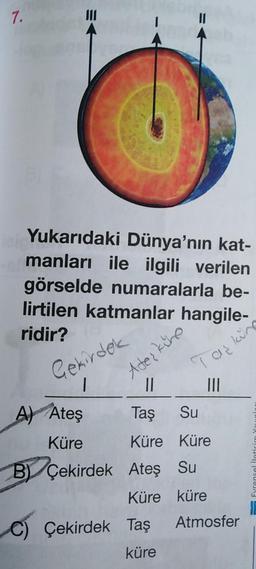 7.
III
I
II
Yukarıdaki Dünya'nın kat-
manları ile ilgili verilen
görselde numaralarla be-
lirtilen katmanlar hangile-
ridir?
Çekirdek Ateş küre Taş küre
I II III
A) Ateş Taş Su
Küre Küre Küre
B) Çekirdek Ateş Su
Küre küre
C) Çekirdek Taş Atmosfer
küre